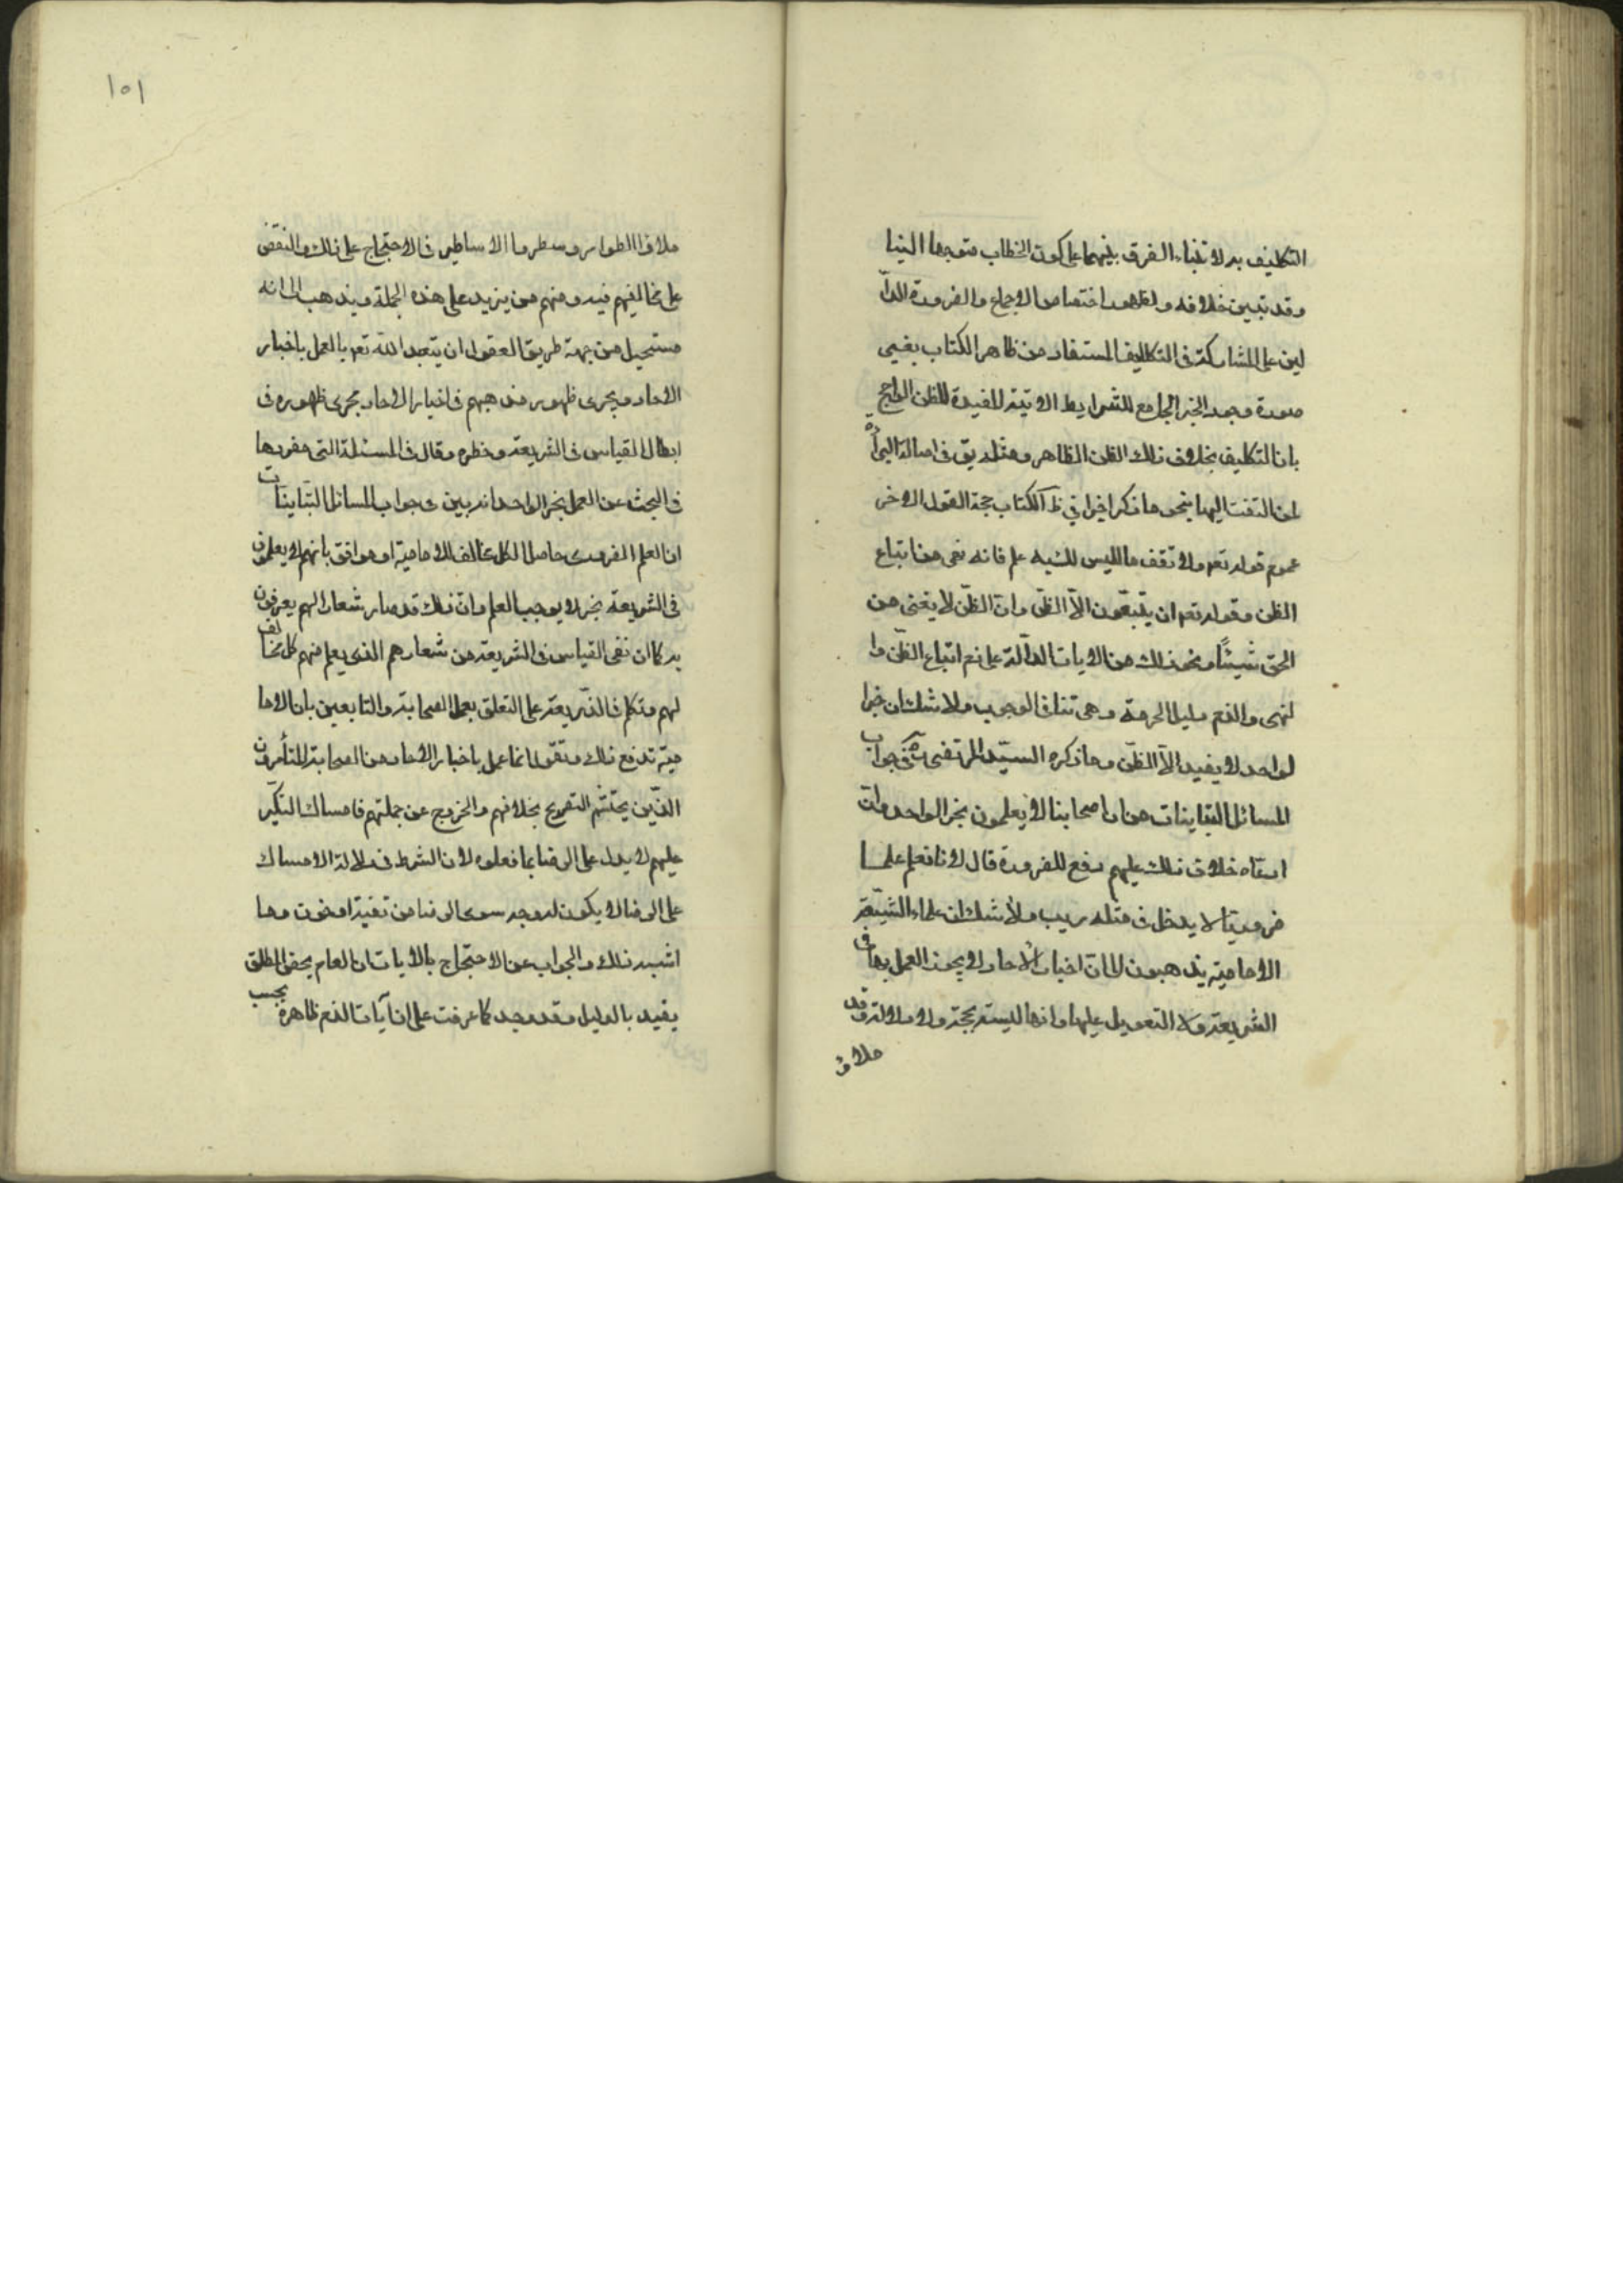 التكليف به لابتناء الفرق بينهما على كون الخطاب متوجها الينا
وقد تبين خلافه ولظهور اختصاص الاجماع والضرورة الدا
لين على المشاركة فى التكاليف المستفاد من ظاهر الكتاب بغير
صورة وجود الخبر الجامع للشرايط الاتية المفيدة للظن الراجح
بان التكليف بخلاف ذلك الظن الظاهر ومثله يق فى اصالة البرأة
لمن التفت اليها بنحو ما ذكر اخيرا فى ظ الكتاب حجة القول الاخر
عموم قوله تعه ولا تقف ما ليس لك به علم فانه نهى عن اتباع
الظن وقوله تعه ان يتبعون الا الظن وان الظن لا يغنى من
الحق شيئا ونحو ذلك من الايات الدالة على ذم اتباع الظن وا
لنهى والذم دليل الحرمة وهى تنافى الوجوب ولا شك ان خبر ا
لواحد لا يفيد الا الظن وما ذكره السيد المرتضى فى جواب
المسائل التباينات من ان اصحابنا لا يعلمون بخبر الواحد وان
ادعاء خلاف ذلك عليهم دفع للضرورة قال لانا نعلم علما
ضروريا لا يدخل فى مثله ريب ولا شك ان علماء الشيعة
الامامية يذهبون الى ان اخبار الاحاد لا يجوز العمل بها فى
الشريعة ولا التعويل عليها وانها ليست بحجة ولا دلالة وقد
ملاؤ
١٥١
ملاؤا الطوامير وسطروا الاساطير فى الاحتجاج على ذلك والنقض
على مخالفيهم فيه ومنهم من يزيد على هذه الجملة ويذهب الى انه
مستحيل من جهة طريق العقول ان يتعبد الله تعه بالعمل باخبار
الاحاد ويجرى ظهور مذهبهم فى اخبار الاحاد مجرى ظهوره فى
ابطال القياس فى الشريعة وخطره وقال فى المسئلة التى مفردها
فى البحث عن العمل بخبر الواحد انه بين فى جواب المسائل التباينات
ان العلم الضرورى حاصل لكل مخالف للامامية او موافق بانهم لا يعلمون
فى الشريعة بخبر لا يوجب العلم وان ذلك قد صار شعارا لهم يعرفون
به كما ان نفى القياس فى الشريعة من شعارهم الذى يعلم منهم كل مخالف
لهم وتكلم فى الذريعة على التعلق بعمل الصحابة والتابعين بان الاما
مية تدفع ذلك وتقول انما عمل باخبار الاحاد من الصحابة المتأمرون
الذين يحتشم التصريح بخلافهم والخروج عن جملتهم فامساك النكير
عليهم لا يدل على الرضا بما فعلوه لان الشرط فى دلالة الامساك
على الرضا لا يكون له وجه سوى الرضا من تقية او خوف وما
اشبه ذلك والجواب عن الاحتجاج بالايات ان العام يخص والمطلق
يقيد بالدليل وقد وجد كما عرفت على ان آيات الذم ظاهرة بحسب